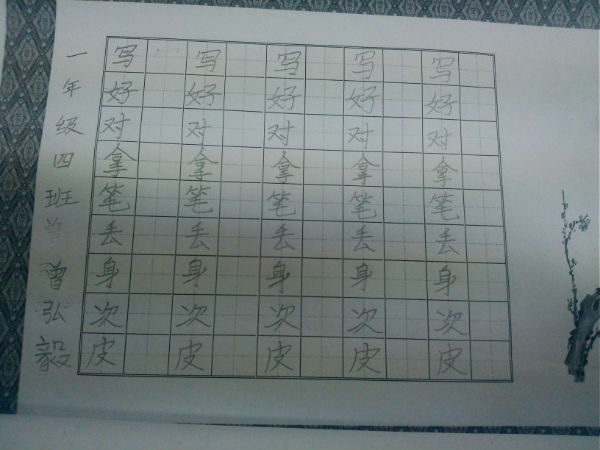 一年级四班曾弘毅
写 写 写 写 写
好 好 好 好 好
对 对 对 对 对
拿 拿 拿 拿 拿
笔 笔 笔 笔 笔
丢 丢 丢 丢 丢
身 身 身 身 身
次 次 次 次 次
皮 皮 皮 皮 皮